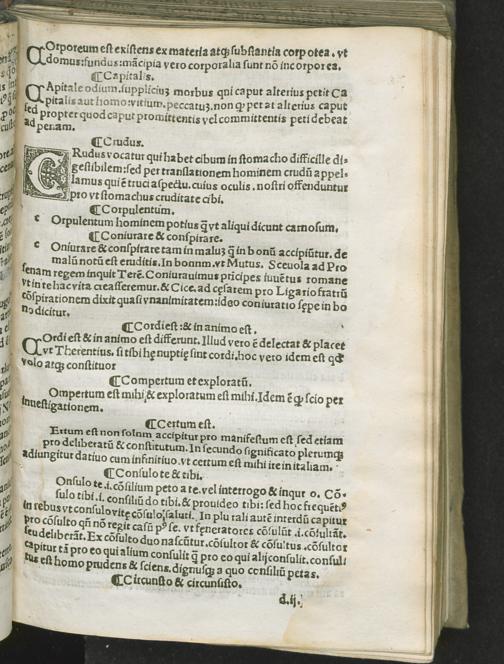 COrporeum est existens ex materia atq; substantia corpotea. vt
domus: fundus: mācipia vero corporalia sunt nō incorporea.
¶Capitalis.
CApitale odium. suppliciuʒ morbus qui caput alterius petit Ca
pitalis aut homo: vitium. peccatuʒ. non ꝙ petat alterius caput
sed propter quod caput promittentis vel committentis peti debeat
ad penam.
¶Crudus.
CRudus vocatur qui habet cibum in stomacho difficille di⸗
gestibilem: sed per translationem hominem crudū appel⸗
lamus qui ē truci aspectu. cuius oculis. nostri offenduntur
pro vt stomachus cruditate cibi.
¶Corpulentum.
c Orpulentum hominem potius q̄ vt aliqui dicunt carnosum.
¶Coniurare & conspirare.
c Oniurare & conspirare tam in maluʒ q̄ in bonū accipiūtur. de
malū notū est eruditis. In bonum. vt Mutus. Sceuola ad Pro
senam regem inquit Terē. Coniurauimus pricipes iuuētus romane
vt in te hac vita creasseremur. & Cice. ad cęsarem pro Ligario fratrū
cōspirationem dixit quasi vnanimitatem: ideo coniuratio sępe in bo
no dicitur.
¶Cordi est: & in animo est.
COrdi est & in animo est differunt. Illud vero ē delectat & placet
vt Therentius. si tibi hę nuptię sint cordi. hoc vero idem est qd
volo atq; constituor
¶Compertum et exploratū.
Ompertum est mihi & exploratum est mihi. Idem ē q; scio per
inuestigationem.
¶Certum est.
Ertum est non solum accipitur pro manifestum est sed etiam
pro deliberatū & constitutum. In secundo significatio plerumq;
adiungitur datiuo cum infinitiuo. vt certum est mihi ire in italiam.
¶Consulo te & tibi.
Onsulo te .i. cōsilium peto a te. vel interrogo & inqui o. Cō⸗
sulo tibi .i. consiliū do tibi. & prouideo tibi: sed hoc frequētiꝰ
in rebus vt consulo vitę cōsulo saluti. In plurali autē interdū capitur
pro cōsulto qn̄ nō regit casū p̄ se. vt feneratores cōsulūt .i. cōsultāt.
seu deliberāt. Ex cōsulto duo nascūtur. cōsultor & cōsultus. cōsultor
capitur tā pro eo qui alium consulit q̄ pro eo qui alij consulit. consul⸗
tus est homo prudens & sciens. dignusq; a quo consiliū petas.
¶Circunsto & circunsisto.
d.ij.